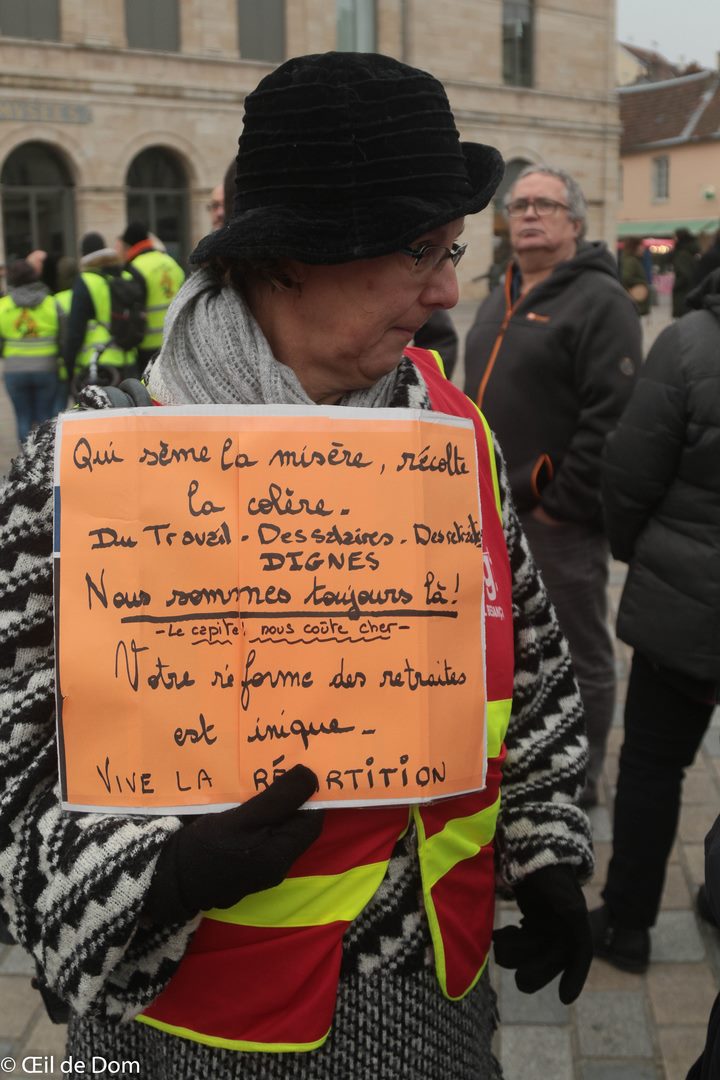 MUSÉES
Qui sème la misère, récolte
la colère.
Du Travail - Des salaires - Des retraites
DIGNES
Nous sommes toujours là !
- Le capital nous coûte cher -
Votre réforme des retraites
est inique -
VIVE LA RÉPARTITION
© Œil de Dom